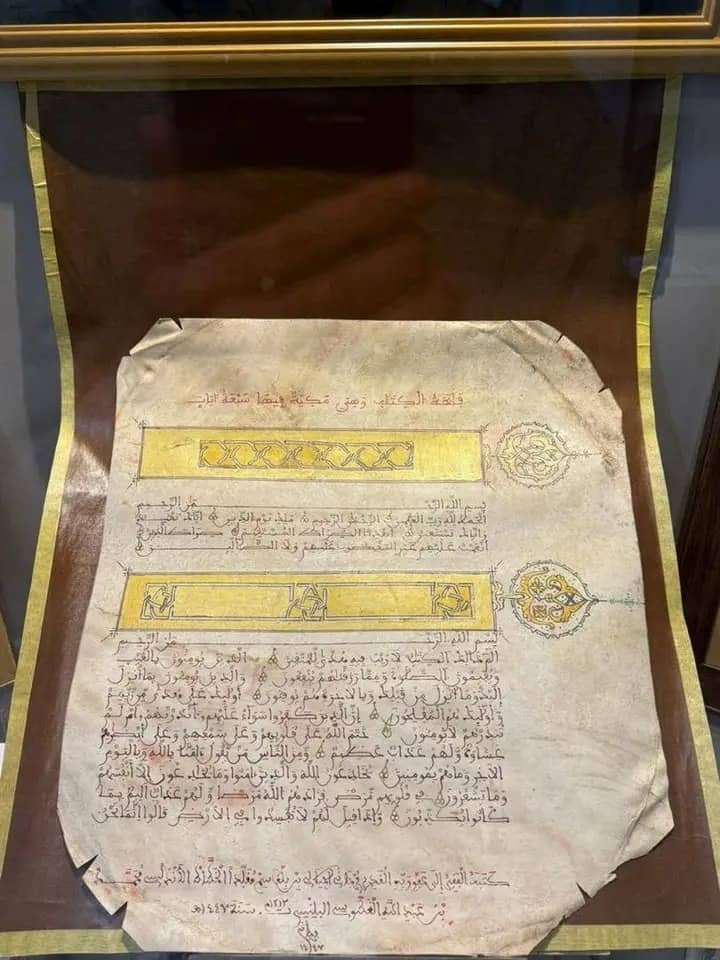 فاتحة الكتاب وهي مكية فيها سبعة آيات
بسم الله الرحمن الرحيم
الحمد لله رب العلمين الرحمن الرحيم ملك يوم الدين إياك نعبد
وإياك نستعين اهدنا الصراط المستقيم صراط الذين
أنعمت عليهم غير المغضوب عليهم ولا الضالين
بسم الله الرحمن الرحيم
الم ذلك الكتب لا ريب فيه هدى للمتقين الذين يومنون بالغيب
ويقيمون الصلوة ومما رزقنهم ينفقون والذين يومنون بما أنزل
إليك وما أنزل من قبلك وبالاخرة هم يوقنون أوليك على هدى من ربهم
وأوليك هم المفلحون إن الذين كفروا سواء عليهم ءانذرتهم أم لم
تنذرهم لا يومنون ختم الله على قلوبهم وعلى سمعهم وعلى أبصرهم
غشوة ولهم عذاب عظيم ومن الناس من يقول ءامنا بالله وباليوم
الاخر وما هم بمومنين يخدعون الله والذين ءامنوا وما يخدعون إلا أنفسهم
وما يشعرون في قلوبهم مرض فزادهم الله مرضا ولهم عذاب اليم بما
كانوا يكذبون وإذا قيل لهم لا تفسدوا في الارض قالوا إنما نحن
كتبه الفقير إلى ربه بن بلقاسم مقلدا الخطاط الأندلسي محمد
بن عبد الله البلنسي سنة ١٤٤٧هـ